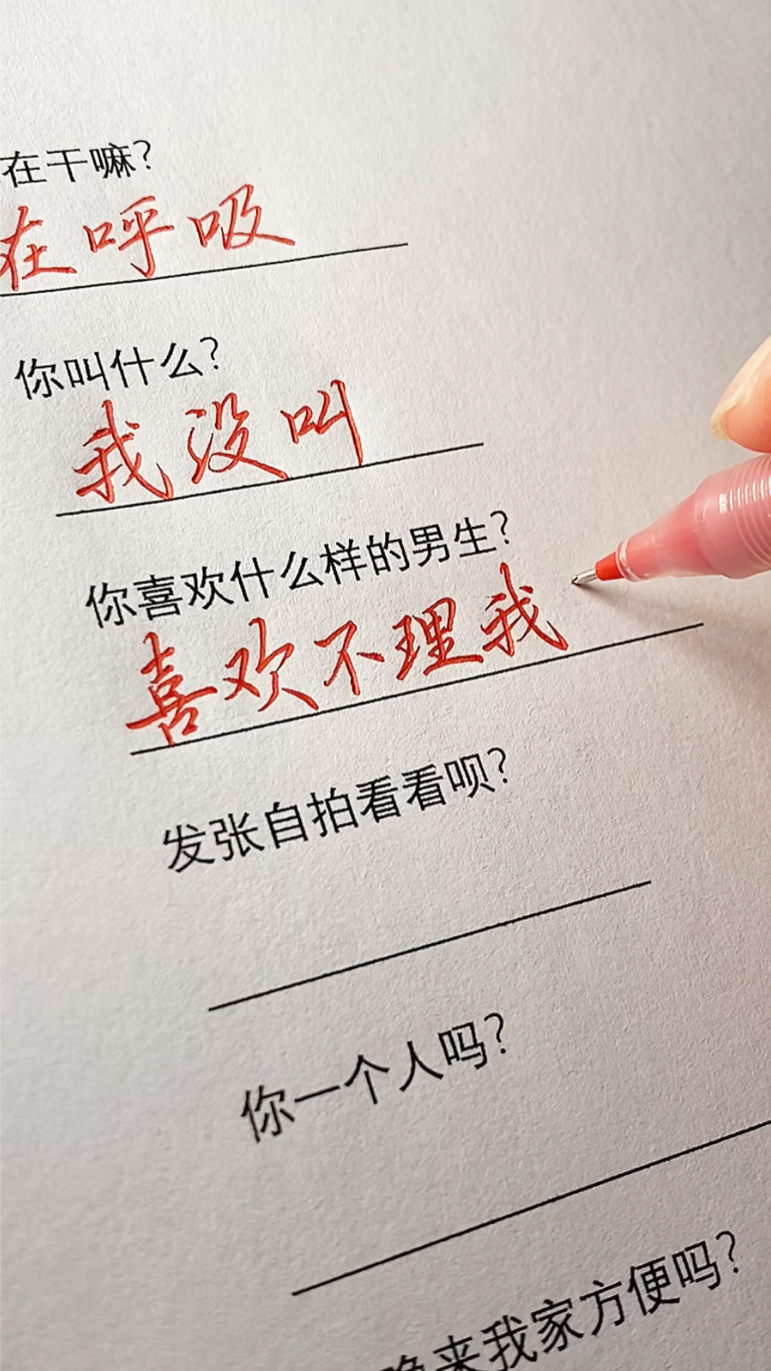 在干嘛?
在呼吸
你叫什么?
我没叫
你喜欢什么样的男生?
喜欢不理我
发张自拍看看呗?
你一个人吗?
晚来我家方便吗?